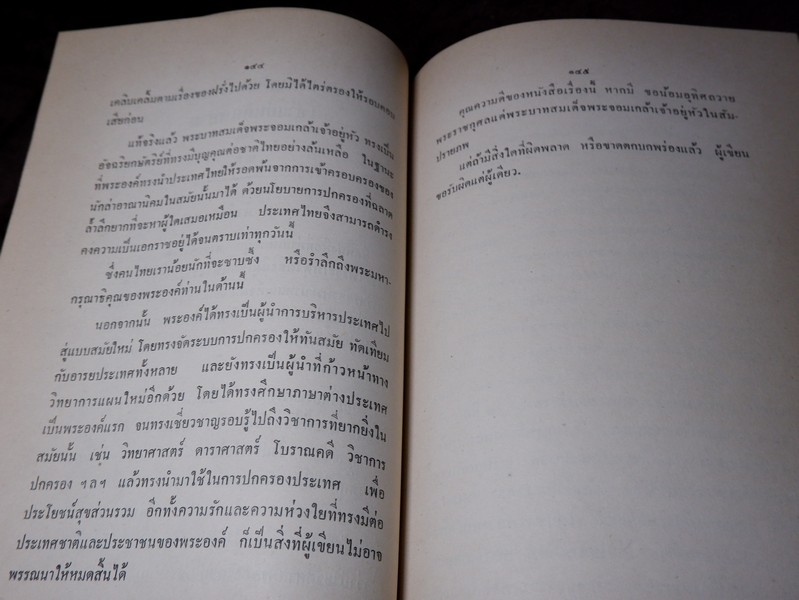 ๑๔๔
เคลิบเคลิ้มตามเรื่องของฝรั่งไปด้วย โดยมิได้ไตร่ตรองให้รอบคอบ
เสียก่อน
แท้จริงแล้ว พระบาทสมเด็จพระจอมเกล้าเจ้าอยู่หัว ทรงเป็น
อัจฉริยกษัตริย์ที่ทรงมีบุญคุณต่อชาติไทยอย่างล้นเหลือ ในฐานะ
ที่พระองค์ทรงนำประเทศไทยให้รอดพ้นจากการเข้าครอบครองของ
นักล่าอาณานิคมในสมัยนั้นมาได้ ด้วยนโยบายการปกครองที่ฉลาด
ล้ำลึกยากที่จะหาผู้ใดเสมอเหมือน ประเทศไทยจึงสามารถดำรง
คงความเป็นเอกราชอยู่ได้จนตราบเท่าทุกวันนี้
ซึ่งคนไทยเราน้อยนักที่จะซาบซึ้ง หรือรำลึกถึงพระมหา-
กรุณาธิคุณของพระองค์ท่านในด้านนี้
นอกจากนั้น พระองค์ได้ทรงเป็นผู้นำการบริหารประเทศไป
สู่แบบสมัยใหม่ โดยทรงจัดระบบการปกครองให้ทันสมัย ทัดเทียม
กับอารยประเทศทั้งหลาย และยังทรงเป็นผู้นำที่ก้าวหน้าทาง
วิทยาการแผนใหม่อีกด้วย โดยได้ทรงศึกษาภาษาต่างประเทศ
เป็นพระองค์แรก จนทรงเชี่ยวชาญรอบรู้ไปถึงวิชาการที่ยากยิ่งใน
สมัยนั้น เช่น วิทยาศาสตร์ ดาราศาสตร์ โบราณคดี วิชาการ
ปกครอง ฯลฯ แล้วทรงนำมาใช้ในการปกครองประเทศ เพื่อ
ประโยชน์สุขส่วนรวม อีกทั้งความรักและความห่วงใยที่ทรงมีต่อ
ประเทศชาติและประชาชนของพระองค์ ก็เป็นสิ่งที่ผู้เขียนไม่อาจ
พรรณนาให้หมดสิ้นได้
๑๔๕
คุณความดีของหนังสือเรื่องนี้ หากมี ขอน้อมอุทิศถวาย
พระราชกุศลแด่พระบาทสมเด็จพระจอมเกล้าเจ้าอยู่หัวในสัม-
ปรายภพ
แต่ถ้ามีสิ่งใดที่ผิดพลาด หรือขาดตกบกพร่องแล้ว ผู้เขียน
ขอรับผิดแต่ผู้เดียว.